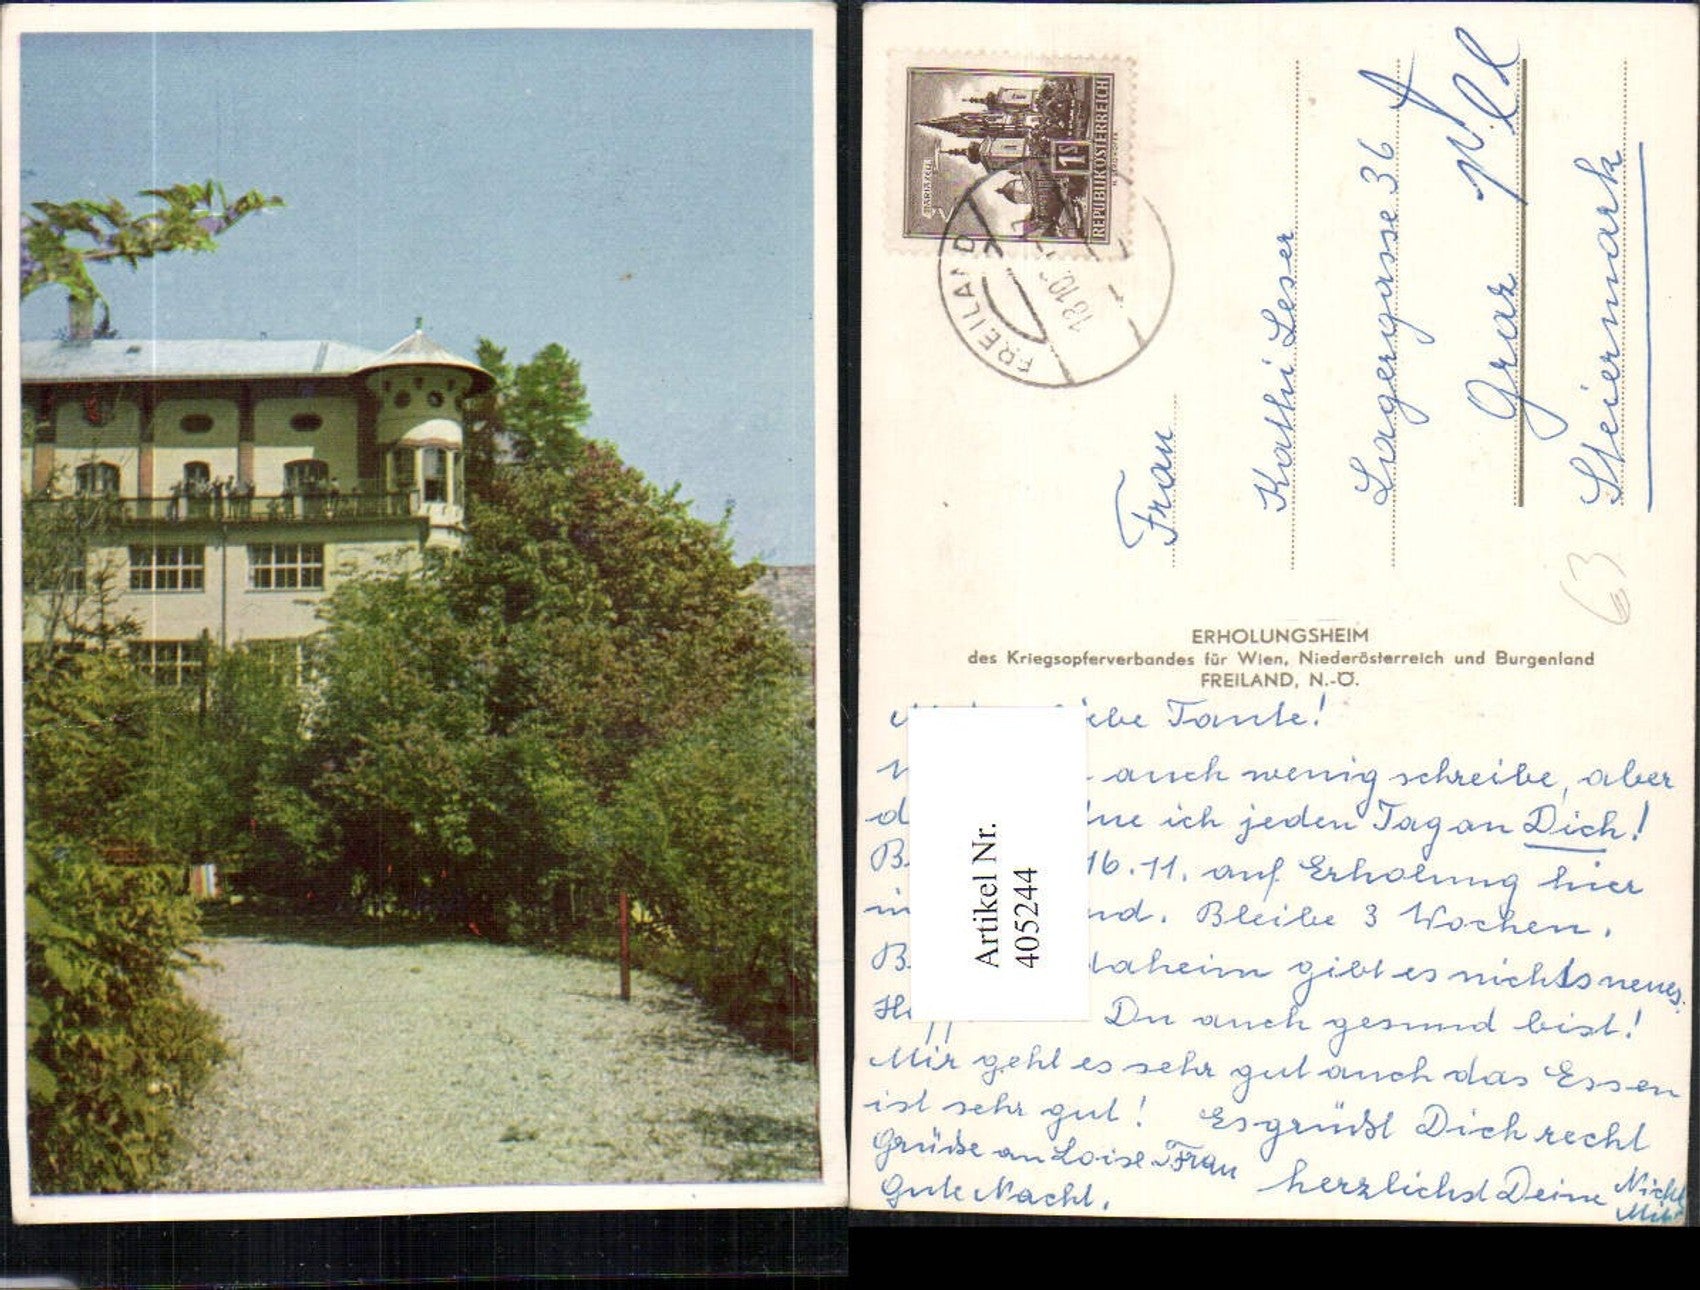 MARIAZELL
1 S
REPUBLIK ÖSTERREICH
FREILAND
18.10.
Frau
Kathi Leser
Lagergasse 36
Graz
Steiermark
63
ERHOLUNGSHEIM
des Kriegsopferverbandes für Wien, Niederösterreich und Burgenland
FREILAND, N.-Ö.
Tante!
auch wenig schreibe, aber
ich jeden Tag an Dich!
16.11. auf Erholung hier
nd. Bleibe 3 Wochen.
daheim gibt es nichts neues.
Du auch gesund bist!
Mir geht es sehr gut auch das Essen
ist sehr gut! Es grüßt Dich recht
herzlichst Deine
Grüße an Loise Frau
Gute Nacht.
Artikel Nr.
405244